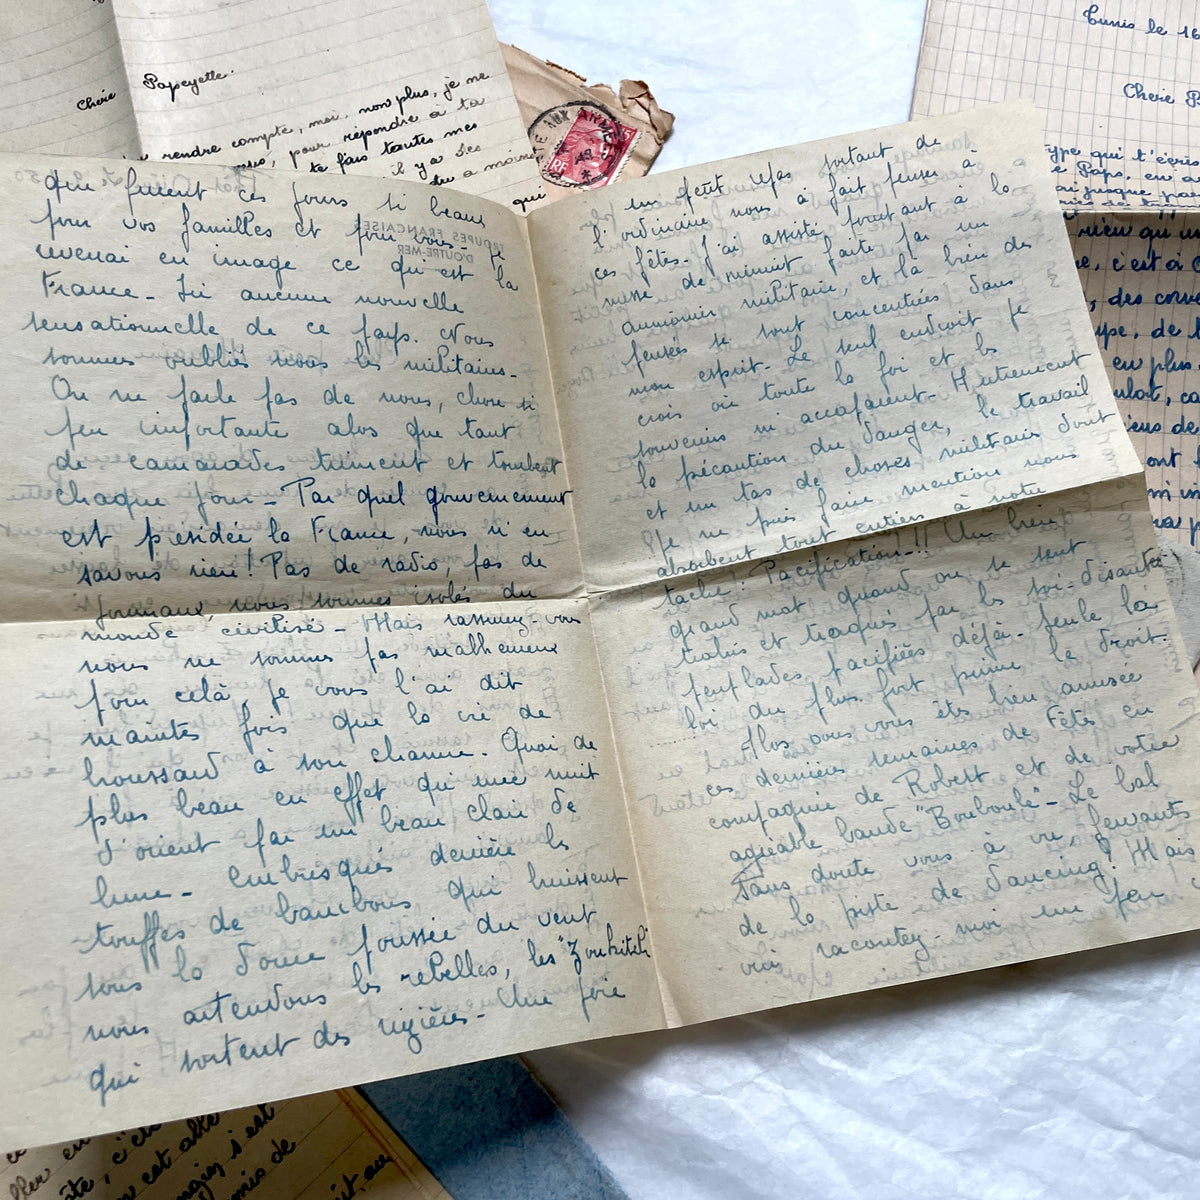 Papeyette.
Cherie
rendre compte, moi non plus, je ne
pour répondre à ta
te fais toutes mes
il y a des
a moins
qui
Tunis le 16
Cherie P
type qui t'écris
Papo, en a
jusque
que furent ces jours si beaux
pour vos familles et pour vous je
revenai en image ce qui est la
France - Ici aucune nouvelle
sensationnelle de ce pays. Nous
sommes oubliés nous les militaires -
On ne parle pas de nous, chose si
peu importante alors que tant
de camarades triment et tombent
chaque jour - Par quel gouvernement
est présidée la France, nous n'en
savons rien! Pas de radio, pas de
journaux, nous sommes isolés du
monde civilisé - Mais rassurez-vous
nous ne sommes pas malheureux
pour celà, je vous l'ai dit
maintes fois que la vie de
broussard à son charme. Quoi de
plus beau en effet qu'une nuit
d'orient par un beau clair de
lune - Embusqués derrière les
touffes de bambous qui bruissent
sous la douce poussée du vent
nous attendons les rebelles, les "Zoukitéli
qui sortent des rizières - Une fois
TROUPES FRANÇAISES
D'OUTRE-MER
RF
un petit repas sortant de
l'ordinaire nous à fait penser à
ces fêtes - J'ai assisté pourtant à la
messe de minuit faite par un
aumonier militaire, et là bien des
pensées se sont concentrées dans
mon esprit - Le seul endroit je
crois où toute la foi et les
souvenirs m'accaparent - Autrement
la précaution du danger, le travail
et un tas de choses militaires dont
je ne puis faire mention nous
absorbent tout entiers à notre
tache! Pacification -!! Un bien
grand mot quand on se sent
trahis et traqués par les soi-disantes
peuplades pacifiées déjà - seule la
loi du plus fort prime le droit.
Alors vous êtes bien amusée
ces dernières semaines de Fêtes en
compagnie de Robert et de votre
agréable bande "Bouboule" - Le bal
sans doute vous à vu, fervants
de la piste de dancing! Mais
oui racontez-moi un peu
rien qu'un
c'est à
des corve
en plus
ont
est allé
s'est
mis de